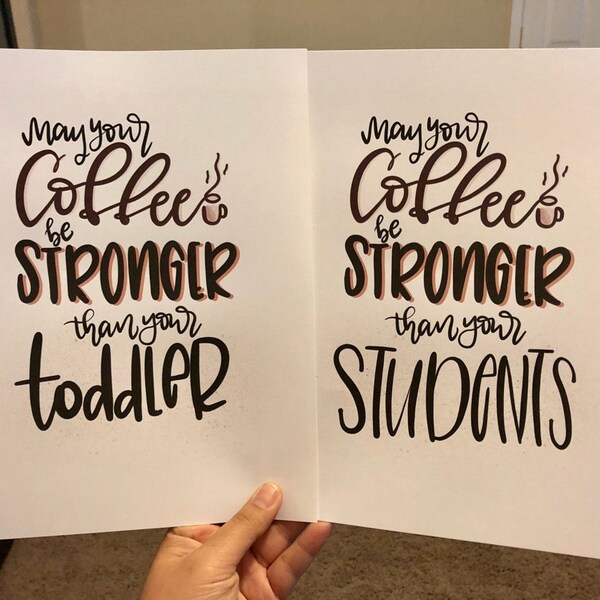 May your
Coffee
be
STRONGER
than your
toddleR
May your
Coffee
be
STRONGER
than your
STUDeNTS